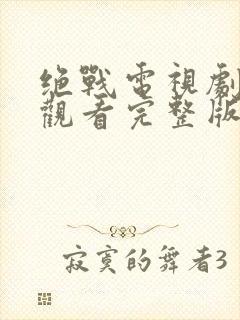 绝戰電視劇
觀看完整版
寂寞的舞者3